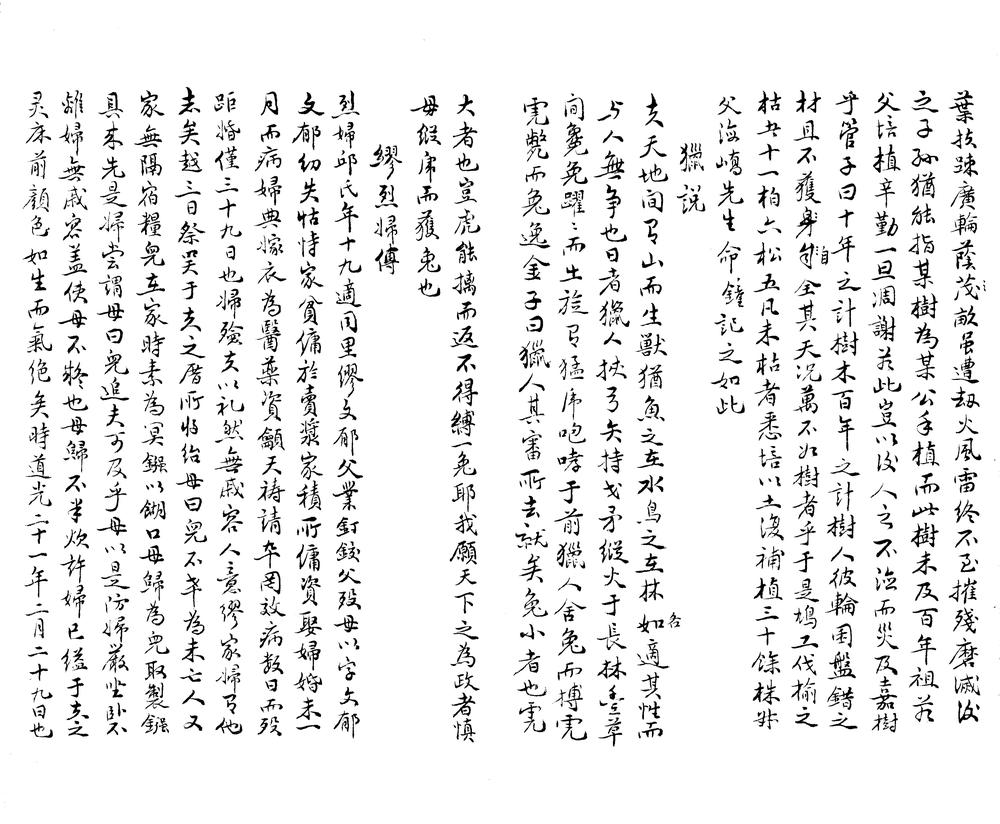 葉扶踈廣輪蔭茂畝虽遭劫火風雷終不至摧殘磨滅後
之子孫猶能指某樹為某公手植而此樹未及百年祖若
父培植辛勤一旦凋謝若此豈以後人之不德而災及嘉樹
乎管子曰十年之計樹木百年之計樹人彼輪囷盤錯之
材且不獲自全其天况萬不如樹者乎于是鳩工伐榆之
枯者十一柏六松五凡未枯者悉培以土復補植三十餘株
父海嶠先生命鐘記之如此
獵説
夫天地间有山而生獸猶魚之在水鳥之在林各適其性而
与人無争也日者獵人挾弓矢持戈矛縱火于長林豐草
间兔躍躍而出旋有猛虎咆哮于前獵人舍兔而搏虎
虎斃而兔逸金子曰獵人其審所去就矣兔小者也虎
大者也豈虎能擒而返不得縛一兔耶我願天下之為政者慎
毋縱虎而獲兔也
繆烈婦傳
烈婦邱氏年十九適同里繆文郁父業釘鉸父殁母以字文郁
文郁幼失怙恃家貧傭於賣漿家積所傭資娶婦婚未一
月而病婦典嫁衣為醫藥資籲天禱請卒罔效病数日而殁
距婚僅三十九日也婦殮夫以礼然無戚容人意繆家婦有他
志矣越三日祭哭于夫之厝所将绐母曰兒不幸為未亡人又
家無隔宿糧兒在家時素為冥鏹以餬口母歸為兒取製鏹
具来先是婦尝謂母曰兒追夫可及乎母以是防婦嚴坐卧不
離婦無戚容盖使母不疑也母歸不半炊許婦已缢于夫之
灵床前顔色如生而氣绝矣時道光二十一年二月二十九日也